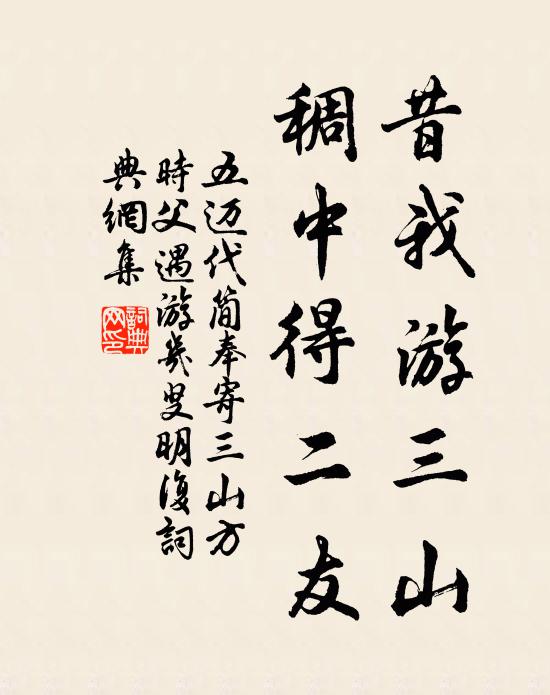 昔我游三山
稠中得二友
五迈代简奉寄三山方
時父遇游㡬叟明復詞
典網集
詞典網印